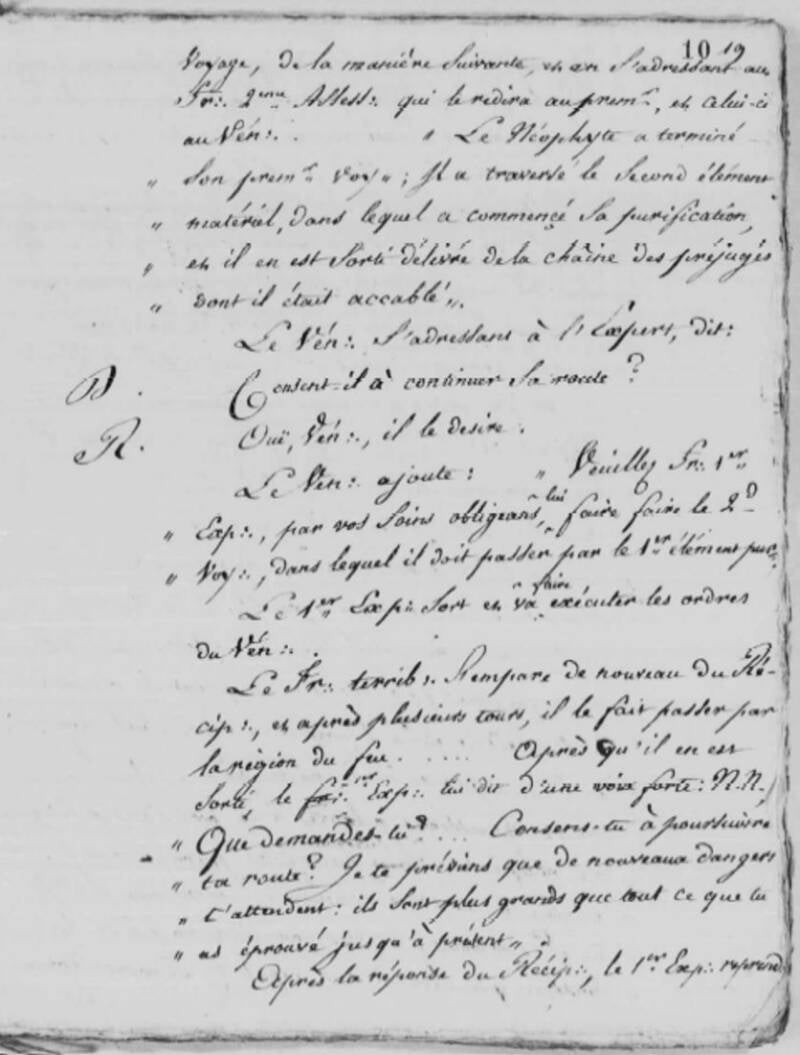 10 19
Voyage, de la maniére Suivante, et en S'adressant au
Fr: 2eme Assess: qui le redira au prem.r, et celui-ci
au Vén: . " Le Néophyte a terminé
" Son prem.r Voy "; Il a traversé le Second élément
" matériel, dans lequel a commencé Sa purification,
" et il en est Sorti délivré de la chaîne des préjugés
" dont il était accablé ".
Le Vén: S'adressant à l'Expert, dit:
D. Consent-il à continuer Sa route ?
R. Ouï, Vén:, il le desire.
Le Vén: ajoute: " Veuillez Fr: 1er
" Exp:, par vos Soins obligeans, lui faire faire le 2d
" Voy:, dans lequel il doit passer par le 1er élément
Le 1er Exp: Sort et va faire exécuter les ordres
du Vén: .
Le Fr: terrib: S'empare de nouveau du Ré-
cip:, et après plusieurs tours, il le fait passer par
la région du feu. .... Après qu'il en est
Sorti, le 1er Exp: lui dit d'une voix forte: N.N.,
" Que demandes-tu ? .... Consens-tu à poursuivre
" ta route ? Je te préviens que de nouveaux dangers
" t'attendent: ils Sont plus grands que tout ce que tu
" as éprouvé jusqu'à présent ".
Après la réponse du Récip:, le 1er Exp: reprend